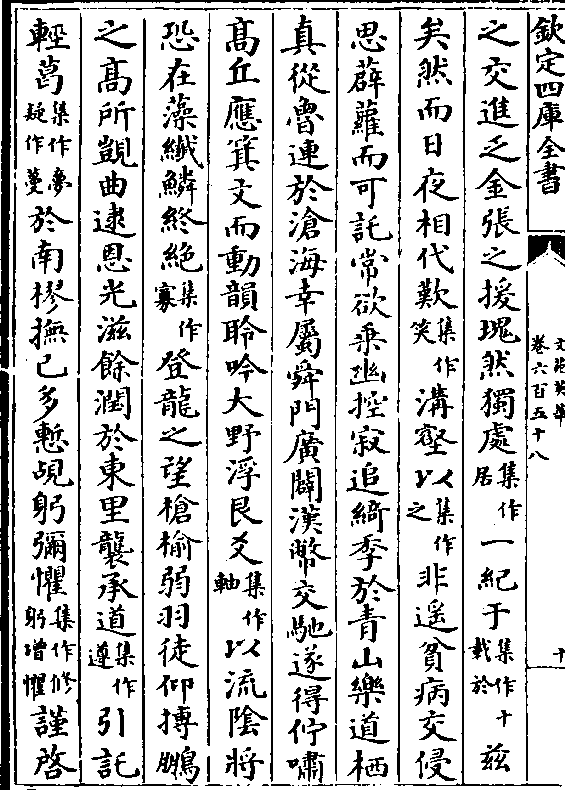 欽定四庫全書
文苑英華
卷六百五十八
十
之交進乏金張之援塊然獨處集作居一紀于集作十載於茲
矣然而日夜相代歎集作笑溝壑以集作之非遥貧病交侵
思薜蘿而可託常欲乗幽控寂追綺季於青山樂道栖
真從魯連於滄海幸屬舜門廣闢漢幣交馳遂得佇嘯
髙丘應箕文而動韻聆吟大野浮艮爻集作軸以流陰將
恐在藻纎鱗終絶集作寡登龍之望槍榆弱羽徒仰摶鵬
之髙所覬曲逮恩光滋餘潤於東里襲承道集作遵引託
輕葛集作夢疑作蔓於南樛撫己多慙覘躬彌懼集作修躬增懼謹啓